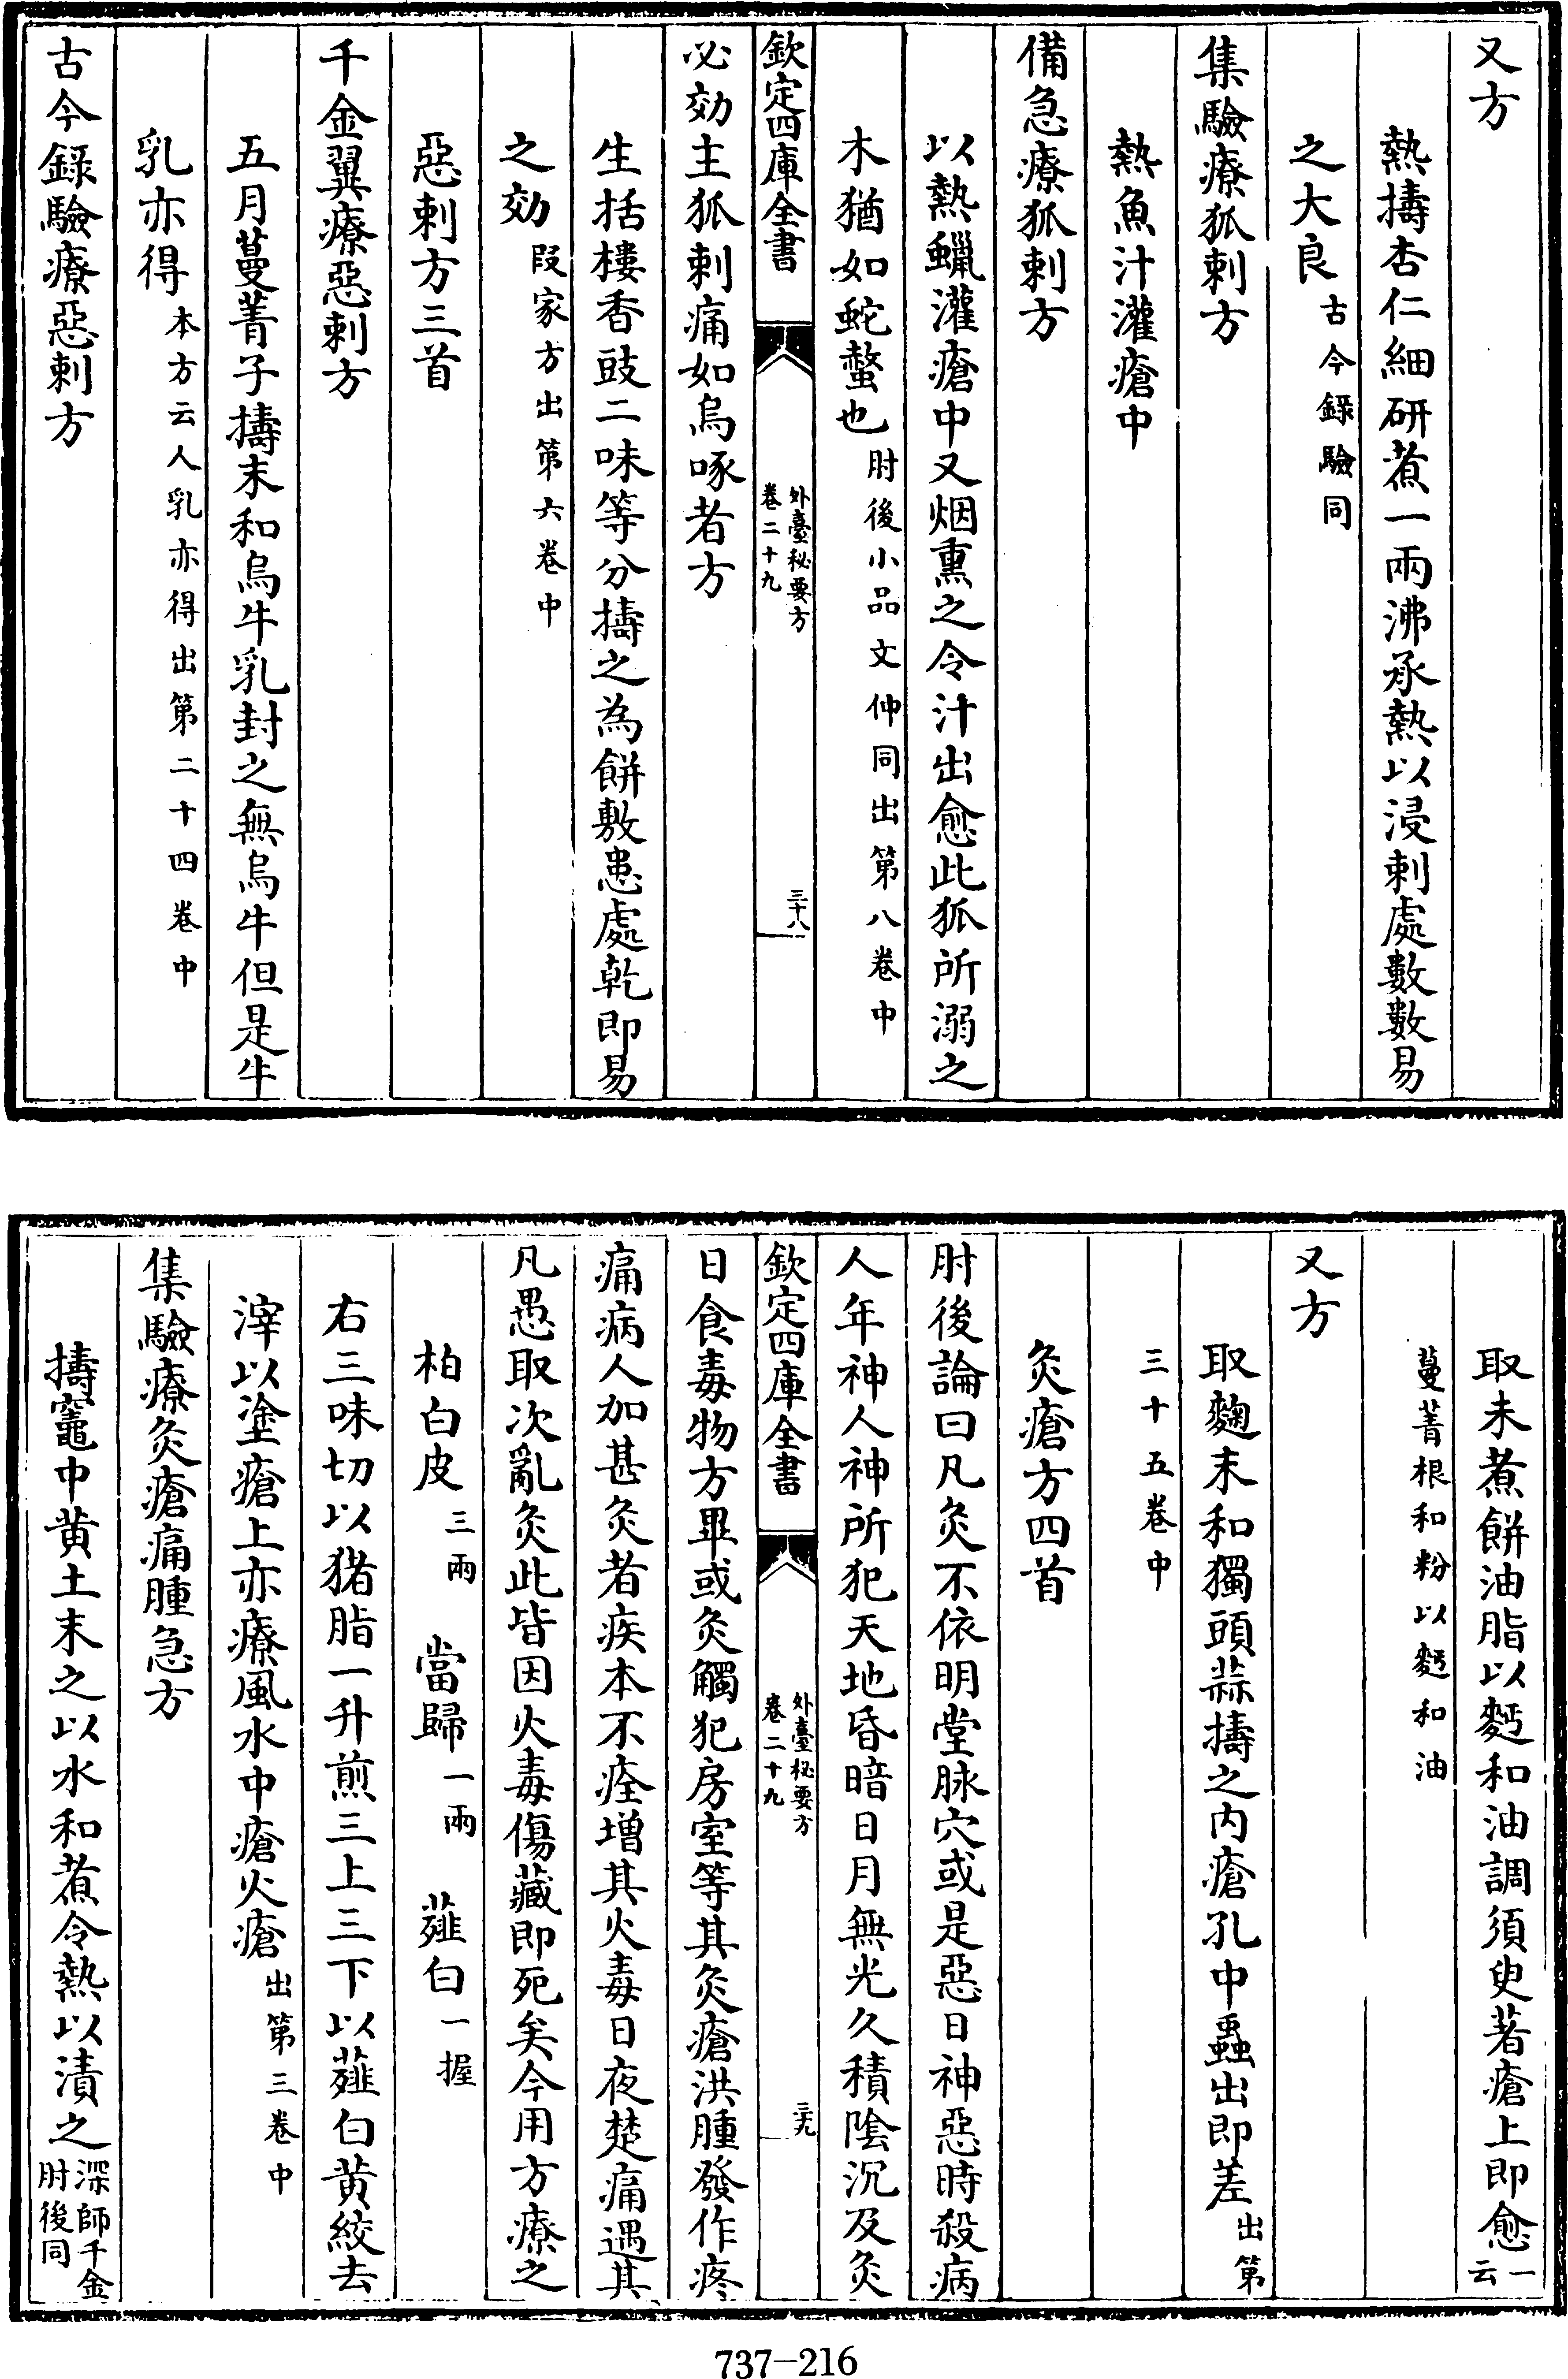 又方
熱擣杏仁細研煮一兩沸承熱以浸刺處數數易
之大良古今録驗同
集驗療狐刺方
熱魚汁灌瘡中
備急療狐刺方
以熱蠟灌瘡中又烟熏之令汁出愈此狐所溺之
木猶如蛇螫也肘後小品文仲同出第八卷中
欽定四庫全書
外臺秘要方
卷二十九
三十八
必効主狐刺痛如烏啄者方
生括樓香豉二味等分擣之為餅敷患處乾即易
之効叚家方出第六卷中
惡刺方三首
千金翼療惡刺方
五月蔓菁子擣末和烏牛乳封之無烏牛但是牛
乳亦得本方云人乳亦得出第二十四卷中
古今録驗療惡刺方
取未煮餅油脂以麫和油調須臾著瘡上即愈一云
蔓菁根和粉以麫和油
又方
取麴末和獨頭蒜擣之内瘡孔中蟲出即差出第
三十五卷中
灸瘡方四首
肘後論曰凡灸不依明堂脉穴或是惡日神惡時殺病
人年神人神所犯天地昏暗日月無光久積陰沉及灸
欽定四庫全書
外臺秘要方
卷二十九
三十九
日食毒物方畢或灸觸犯房室等其灸瘡洪腫發作疼
痛病人加甚灸者疾本不痊增其火毒日夜楚痛遇其
凡愚取次亂灸此皆因火毒傷藏即死矣今用方療之
柏白皮三兩 當歸一兩 薤白一握
右三味切以猪脂一升煎三上三下以薤白黄絞去
滓以塗瘡上亦療風水中瘡火瘡出第三卷中
集驗療灸瘡痛腫急方
擣竈中黄土末之以水和煮令熱以漬之深師千金肘後同
737-216